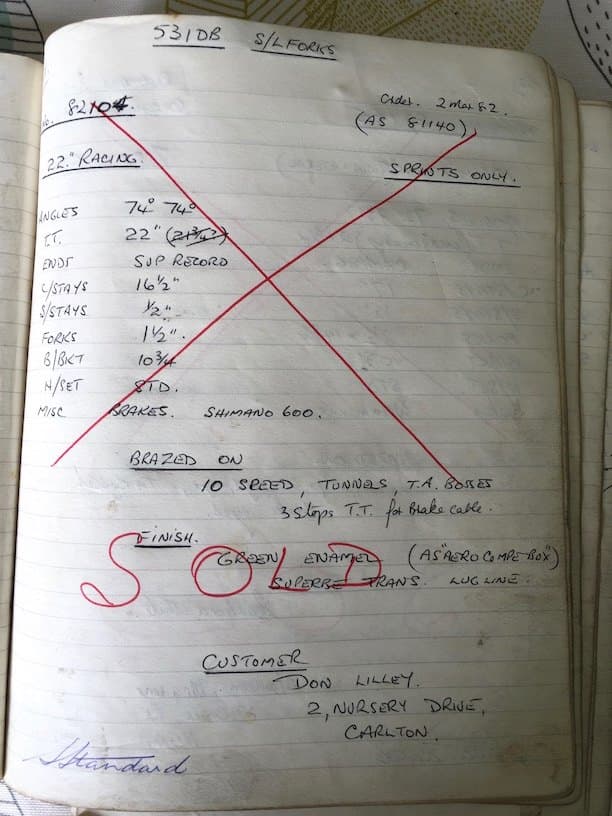 531DB S/L FORKS
No. 82104. Order. 2 Mar 82.
(AS 81140)
22" RACING. SPRINTS ONLY.
ANGLES 74° 74°
T.T. 22" (21¾")
ENDS SUP RECORD
C/STAYS 16½"
S/STAYS ½"
FORKS 1½".
B/BKT 10¾
H/SET STD.
MISC BRAKES. SHIMANO 600.
BRAZED ON
10 SPEED, TUNNELS, T.A. BOSSES
3 Stops T.T. for Brake cable.
FINISH.
GREEN ENAMEL (AS "AERO COMPE-BOX")
SUPERBE TRANS. LUG LINE.
SOLD
CUSTOMER
DON LILLEY.
2, NURSERY DRIVE,
CARLTON.
Standard